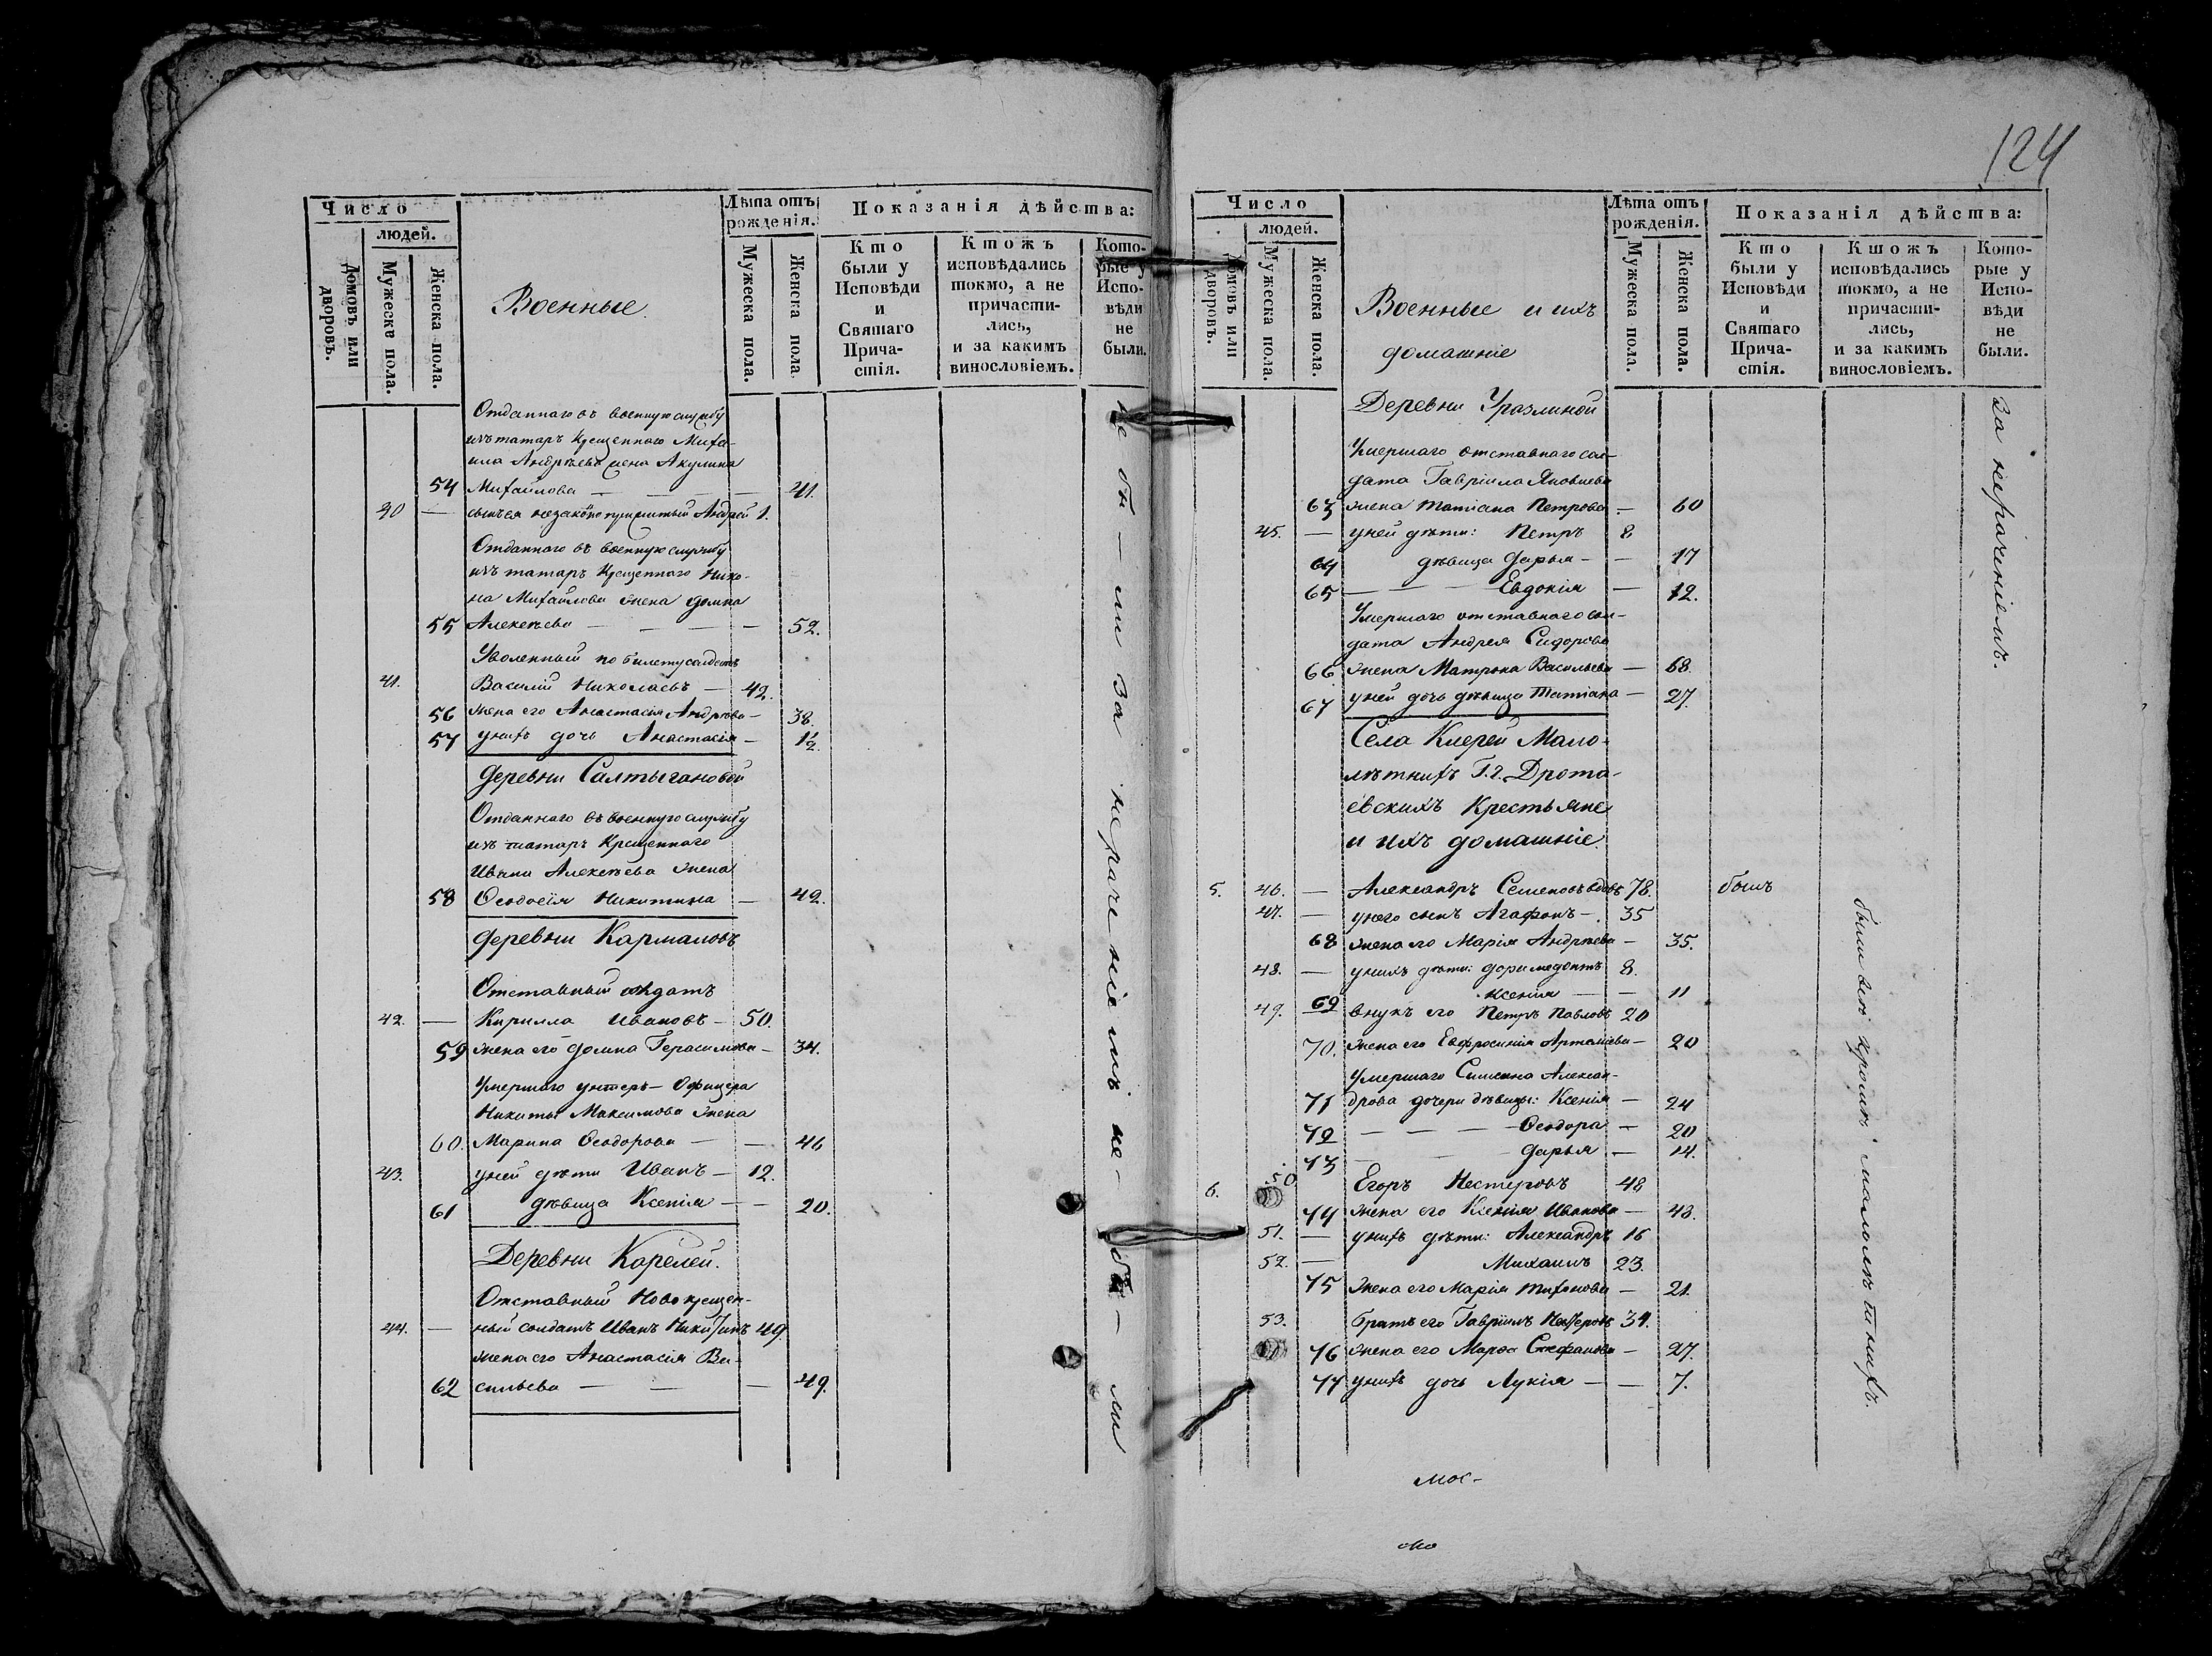 Число
людей.
Домовъ или дворовъ.
Мужеска пола.
Женска пола.
Военные.
Лѣта отъ рожденія.
Мужеска пола.
Женска пола.
Показанія дѣйства:
Кто были у Исповѣди и Святаго Причастія.
Ктожъ исповѣдались токмо, а не причастились, и за какимъ винословіемъ.
Которые у Исповѣди не были.
Отданнаго въ военную службу
изъ татаръ Крещеннаго Миха-
ила Андрѣева жена Акулина
54 Михайлова — — — 41.
40 — сынъ ея незаконоприжитый Андрей 1.
Отданнаго въ военную службу
изъ татаръ Крещеннаго Нико-
на Михайлова жена Домна
55 Алексѣева — — — — 52.
Уволенный по билету солдатъ
41. Василій Николаевъ — 42.
56 жена его Анастасія Андрѣева — 38.
57 у нихъ дочь Анастасія — 1/2.
Деревни Салтыгановой
Отданнаго въ военную службу
изъ татаръ Крещеннаго
Ивана Алексѣева жена
58 Ѳеодосія Никитина — 42.
Деревни Кармаловъ
Отставный солдатъ
42. — Кирилла Ивановъ — 50.
59 жена его Домна Герасимова — 34.
Умершаго унтеръ-Офицера
Никиты Максимова жена
60. Марина Ѳеодорова — — 46
43. у ней дѣти Иванъ — 12.
61 дѣвица Ксенія — — 20.
Деревни Карелей.
Отставный Новокрещен-
44. — ный солдатъ Иванъ Никитинъ 49.
жена его Анастасія Ва-
62 сильева — — — 49.
не бы — ли за нерачені­емъ не — бы — ли
124
Число
людей.
Домовъ или дворовъ.
Мужеска пола.
Женска пола.
Военные и ихъ
домашніе
Лѣта отъ рожденія.
Мужеска пола.
Женска пола.
Показанія дѣйства:
Кто были у Исповѣди и Святаго Причастія.
Ктожъ исповѣдались токмо, а не причастились, и за какимъ винословіемъ.
Которые у Исповѣди не были.
Деревни Уразлиной
Умершаго отставнаго сол-
дата Гавріила Яковлева
63 жена Татіана Петрова — 60
45. — у ней дѣти: Петръ 8
64 дѣвица Дарья — — 17
65 — — Евдокія — 12.
Умершаго отставнаго сол-
дата Андрея Сидорова
66 жена Матрона Васильева — 68.
67 у ней дочь дѣвица Татіана — 27.
за нераченіемъ.
Села Клерей Мало-
лѣтнихъ Г.г. Дрота-
евскихъ Крестьяне
и ихъ домашніе.
5. 46. — Александръ Семеновъ вдовъ 78. былъ
47. — у него сынъ Агафонъ — 35
68 жена его Марія Андрѣева — 35.
48. — у нихъ дѣти: Доримедонтъ 8.
69 Ксенія — — 11
49. — внукъ его Петръ Павловъ 20
70. жена его Евфросинія Артеміева — 20
Умершаго Симеона Алексан-
71 дрова дочери дѣвицы: Ксенія — 24
72 — — — Ѳеодора — 20
73 — Дарья — 14.
6. 50 Егоръ Нестеровъ 48
74 жена его Ксенія Иванова — 48.
51. — у нихъ дѣти: Александръ 16
52. — Михаилъ 23.
75 жена его Марія Тихонова — 21.
53. братъ его Гавріилъ Нестеровъ 34.
76 жена его Марѳа Стефанова — 27.
77 у нихъ дочь Лукія — — 7.
были всѣ кромѣ малолѣтнихъ.